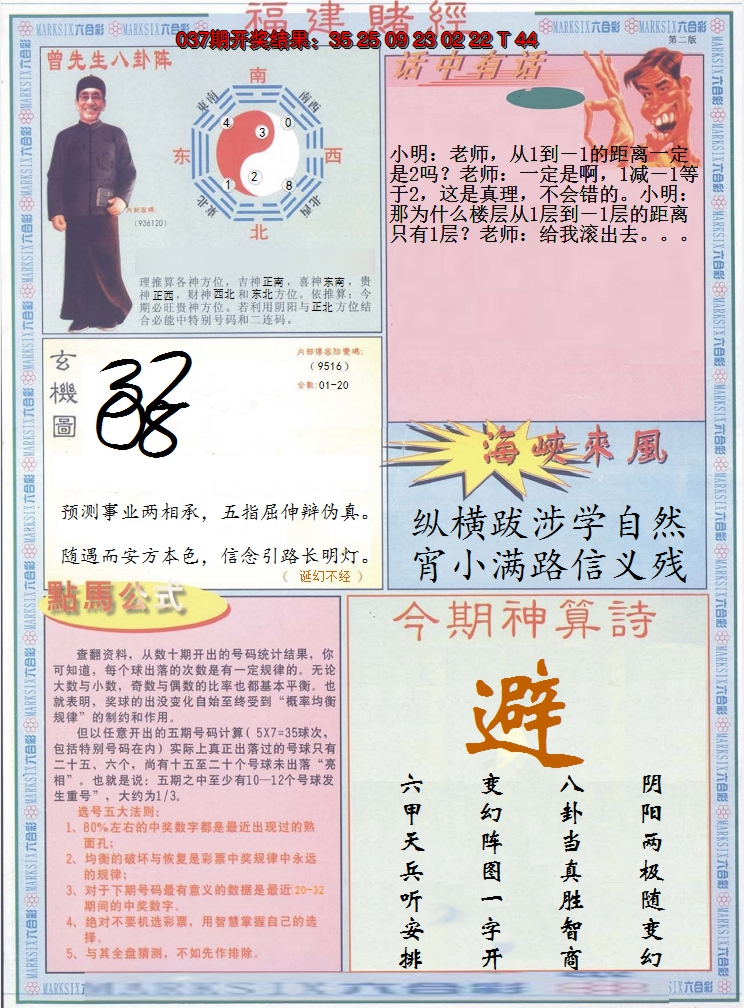 福建賭經
037期开奖结果：35 25 09 23 02 22 T 44
MARKSIX六合彩
第二版
曾先生八卦阵
南
东南
南西
4
3
0
东
西
1
2
8
东北
北西
北
(936120)
理推算各神方位，吉神正南，喜神东南，贵
神正西，财神西北和东北方位。依推算：今
期必旺贵神方位。若利用阴阳与正北方位结
合必能中特别号码和二连码。
话中有话
小明：老师，从1到－1的距离一定
是2吗？老师：一定是啊，1减－1等
于2，这是真理，不会错的。小明：
那为什么楼层从1层到－1层的距离
只有1层？老师：给我滚出去。。。
玄機圖
(9516)
合数:01-20
预测事业两相承，五指屈伸辩伪真。
随遇而安方本色，信念引路长明灯。
（ 诞幻不经 ）
海峽來風
纵横跋涉学自然
宵小满路信义残
點馬公式
查翻资料，从数十期开出的号码统计结果，你
可知道，每个球出落的次数是有一定规律的。无论
大数与小数，奇数与偶数的比率也都基本平衡。也
就表明，奖球的出没变化自始至终受到“概率均衡
规律”的制约和作用。
但以任意开出的五期号码计算( 5X7=35球次，
包括特别号码在内) 实际上真正出落过的号球只有
二十五、六个，尚有十五至二十个号球未出落“亮
相”。也就是说：五期之中至少有10—12个号球发
生重号”，大约为1/3。
选号五大法则：
1、80%左右的中奖数字都是最近出现过的熟
面孔；
2、均衡的破坏与恢复是彩票中奖规律中永远
的规律；
3、对于下期号码最有意义的数据是最近20-32
期间的中奖数字。
4、绝对不要机选彩票，用智慧掌握自己的选
择。
5、与其全盘猜测，不如先作排除。
今期神算詩
避
阴阳两极随变幻
八卦当真胜智商
变幻阵图一字开
六甲天兵听安排